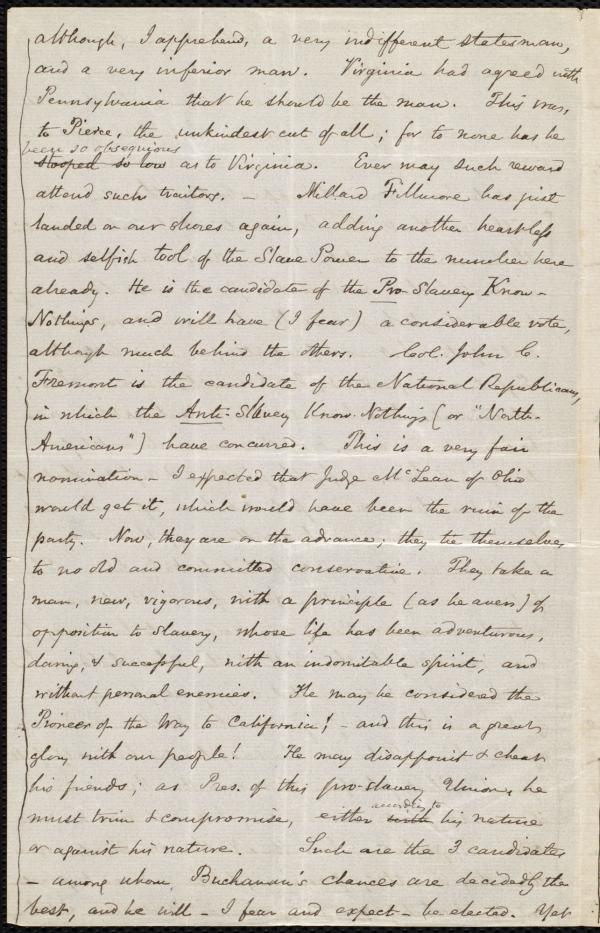 although, I apprehend, a very indifferent statesman,
and a very inferior man. Virginia had agreed with
Pennsylvania that he should be the man. This was,
to Pierce, the unkindest cut of all; for to none has he
been so obsequious
stooped so low as to Virginia. Ever may such reward
attend such traitors. – Millard Fillmore has just
landed on our shores again, adding another heartless
and selfish tool of the Slave Power to the number here
already. He is the candidate of the Pro-Slavery Know-
Nothings, and will have (I fear) a considerable vote,
although much behind the others. Col. John C.
Fremont is the candidate of the National Republicans,
in which the Anti-Slavery Know-Nothings (or "North-
Americans") have concurred. This is a very fair
nomination – I expected that Judge McLean of Ohio
would get it, which would have been the ruin of the
party. Now, they are on the advance; they tie themselves
to no old and committed conservative. They take a
man, new, vigorous, with a principle (as he avers) of
opposition to Slavery, whose life has been adventurous,
daring, & successful, with an indomitable spirit, and
without personal enemies. He may be considered the
Pioneer of the Way to California! – and this is a great
glory with our people! He may disappoint & cheat
his friends; as Pres. of this pro-slavery Union, he
must trim & compromise, either with his nature
according to
or against his nature. Such are the 3 candidates
– among whom Buchanan's chances are decidedly the
best, and he will – I fear and expect – be elected. Yet